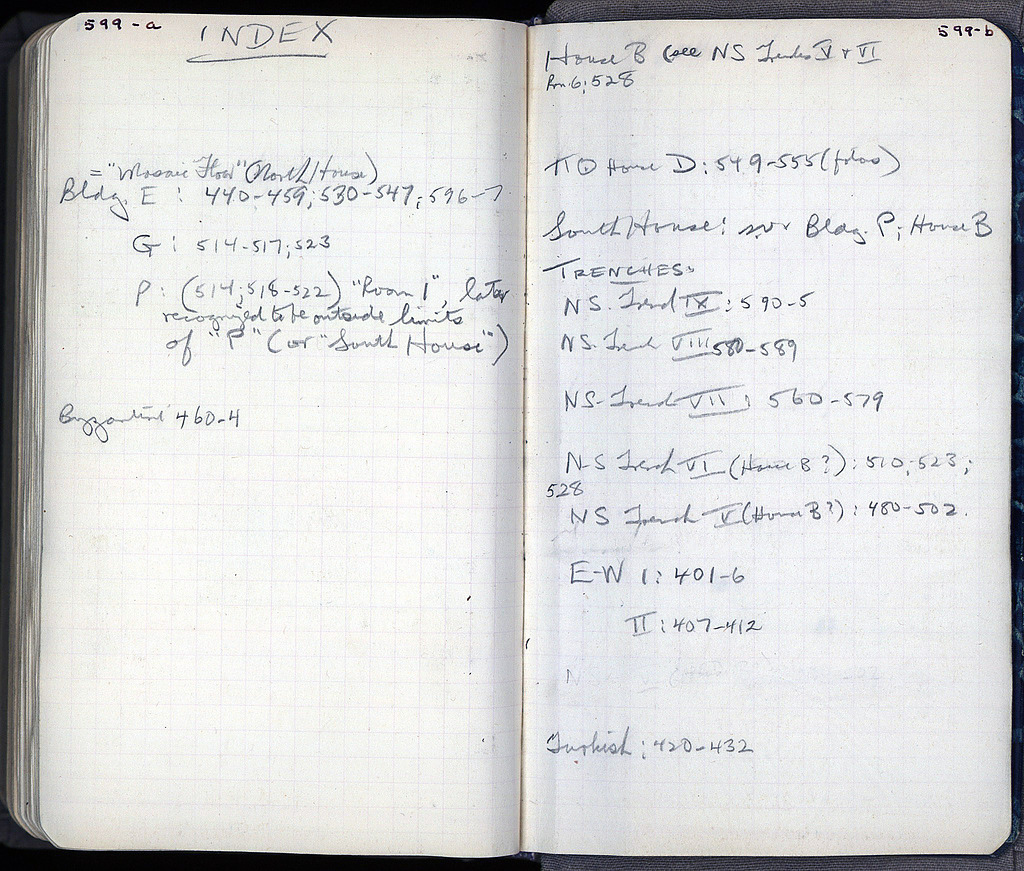 599-a
INDEX
= "Mosaic Floor" (North House)
Bldg. E : 440-459; 530-547; 596-7
G : 514-517; 523
P : (514; 518-522) "Room 1", later
recognized to be outside limits
of "P" (or "South House")
Byzantine 460-4
599-b
House B (see NS Trenches V + VI
Rm. 6: 528
House D: 549-555 (fotos)
South House: Bldg. P; House B
TRENCHES:
NS. Trench IX: 590-5
NS. Trench VIII 580-589
NS-Trench VII: 560-579
N-S Trench VI (House B?): 510-523;
528
NS Trench V (House B?): 480-502.
E-W 1: 401-6
II: 407-412
Turkish: 420-432